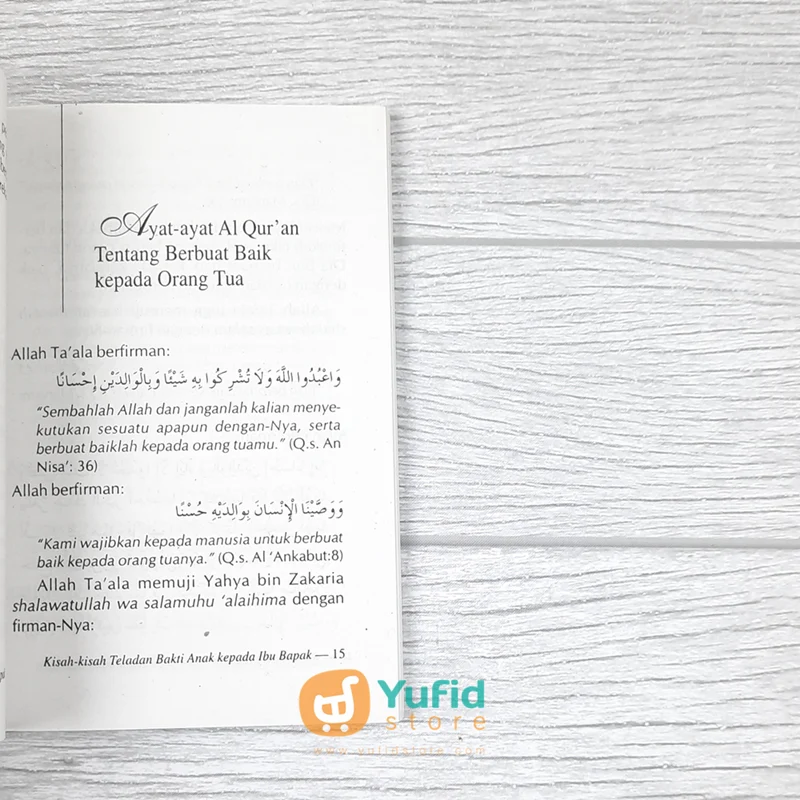 Ayat-ayat Al Qur'an
Tentang Berbuat Baik
kepada Orang Tua
Allah Ta'ala berfirman:
وَاعْبُدُوا اللَّهَ وَلَا تُشْرِكُوا بِهِ شَيْئًا وَبِالْوَالِدَيْنِ إِحْسَانًا
“Sembahlah Allah dan janganlah kalian menye-
kutukan sesuatu apapun dengan-Nya, serta
berbuat baiklah kepada orang tuamu.” (Q.s. An
Nisa': 36)
Allah berfirman:
وَوَصَّيْنَا الْإِنْسَانَ بِوَالِدَيْهِ حُسْنًا
“Kami wajibkan kepada manusia untuk berbuat
baik kepada orang tuanya.” (Q.s. Al ‘Ankabut:8)
Allah Ta'ala memuji Yahya bin Zakaria
shalawatullah wa salamuhu ‘alaihima dengan
firman-Nya:
Kisah-kisah Teladan Bakti Anak kepada Ibu Bapak — 15
Yufid
store
www.yufidstore.com